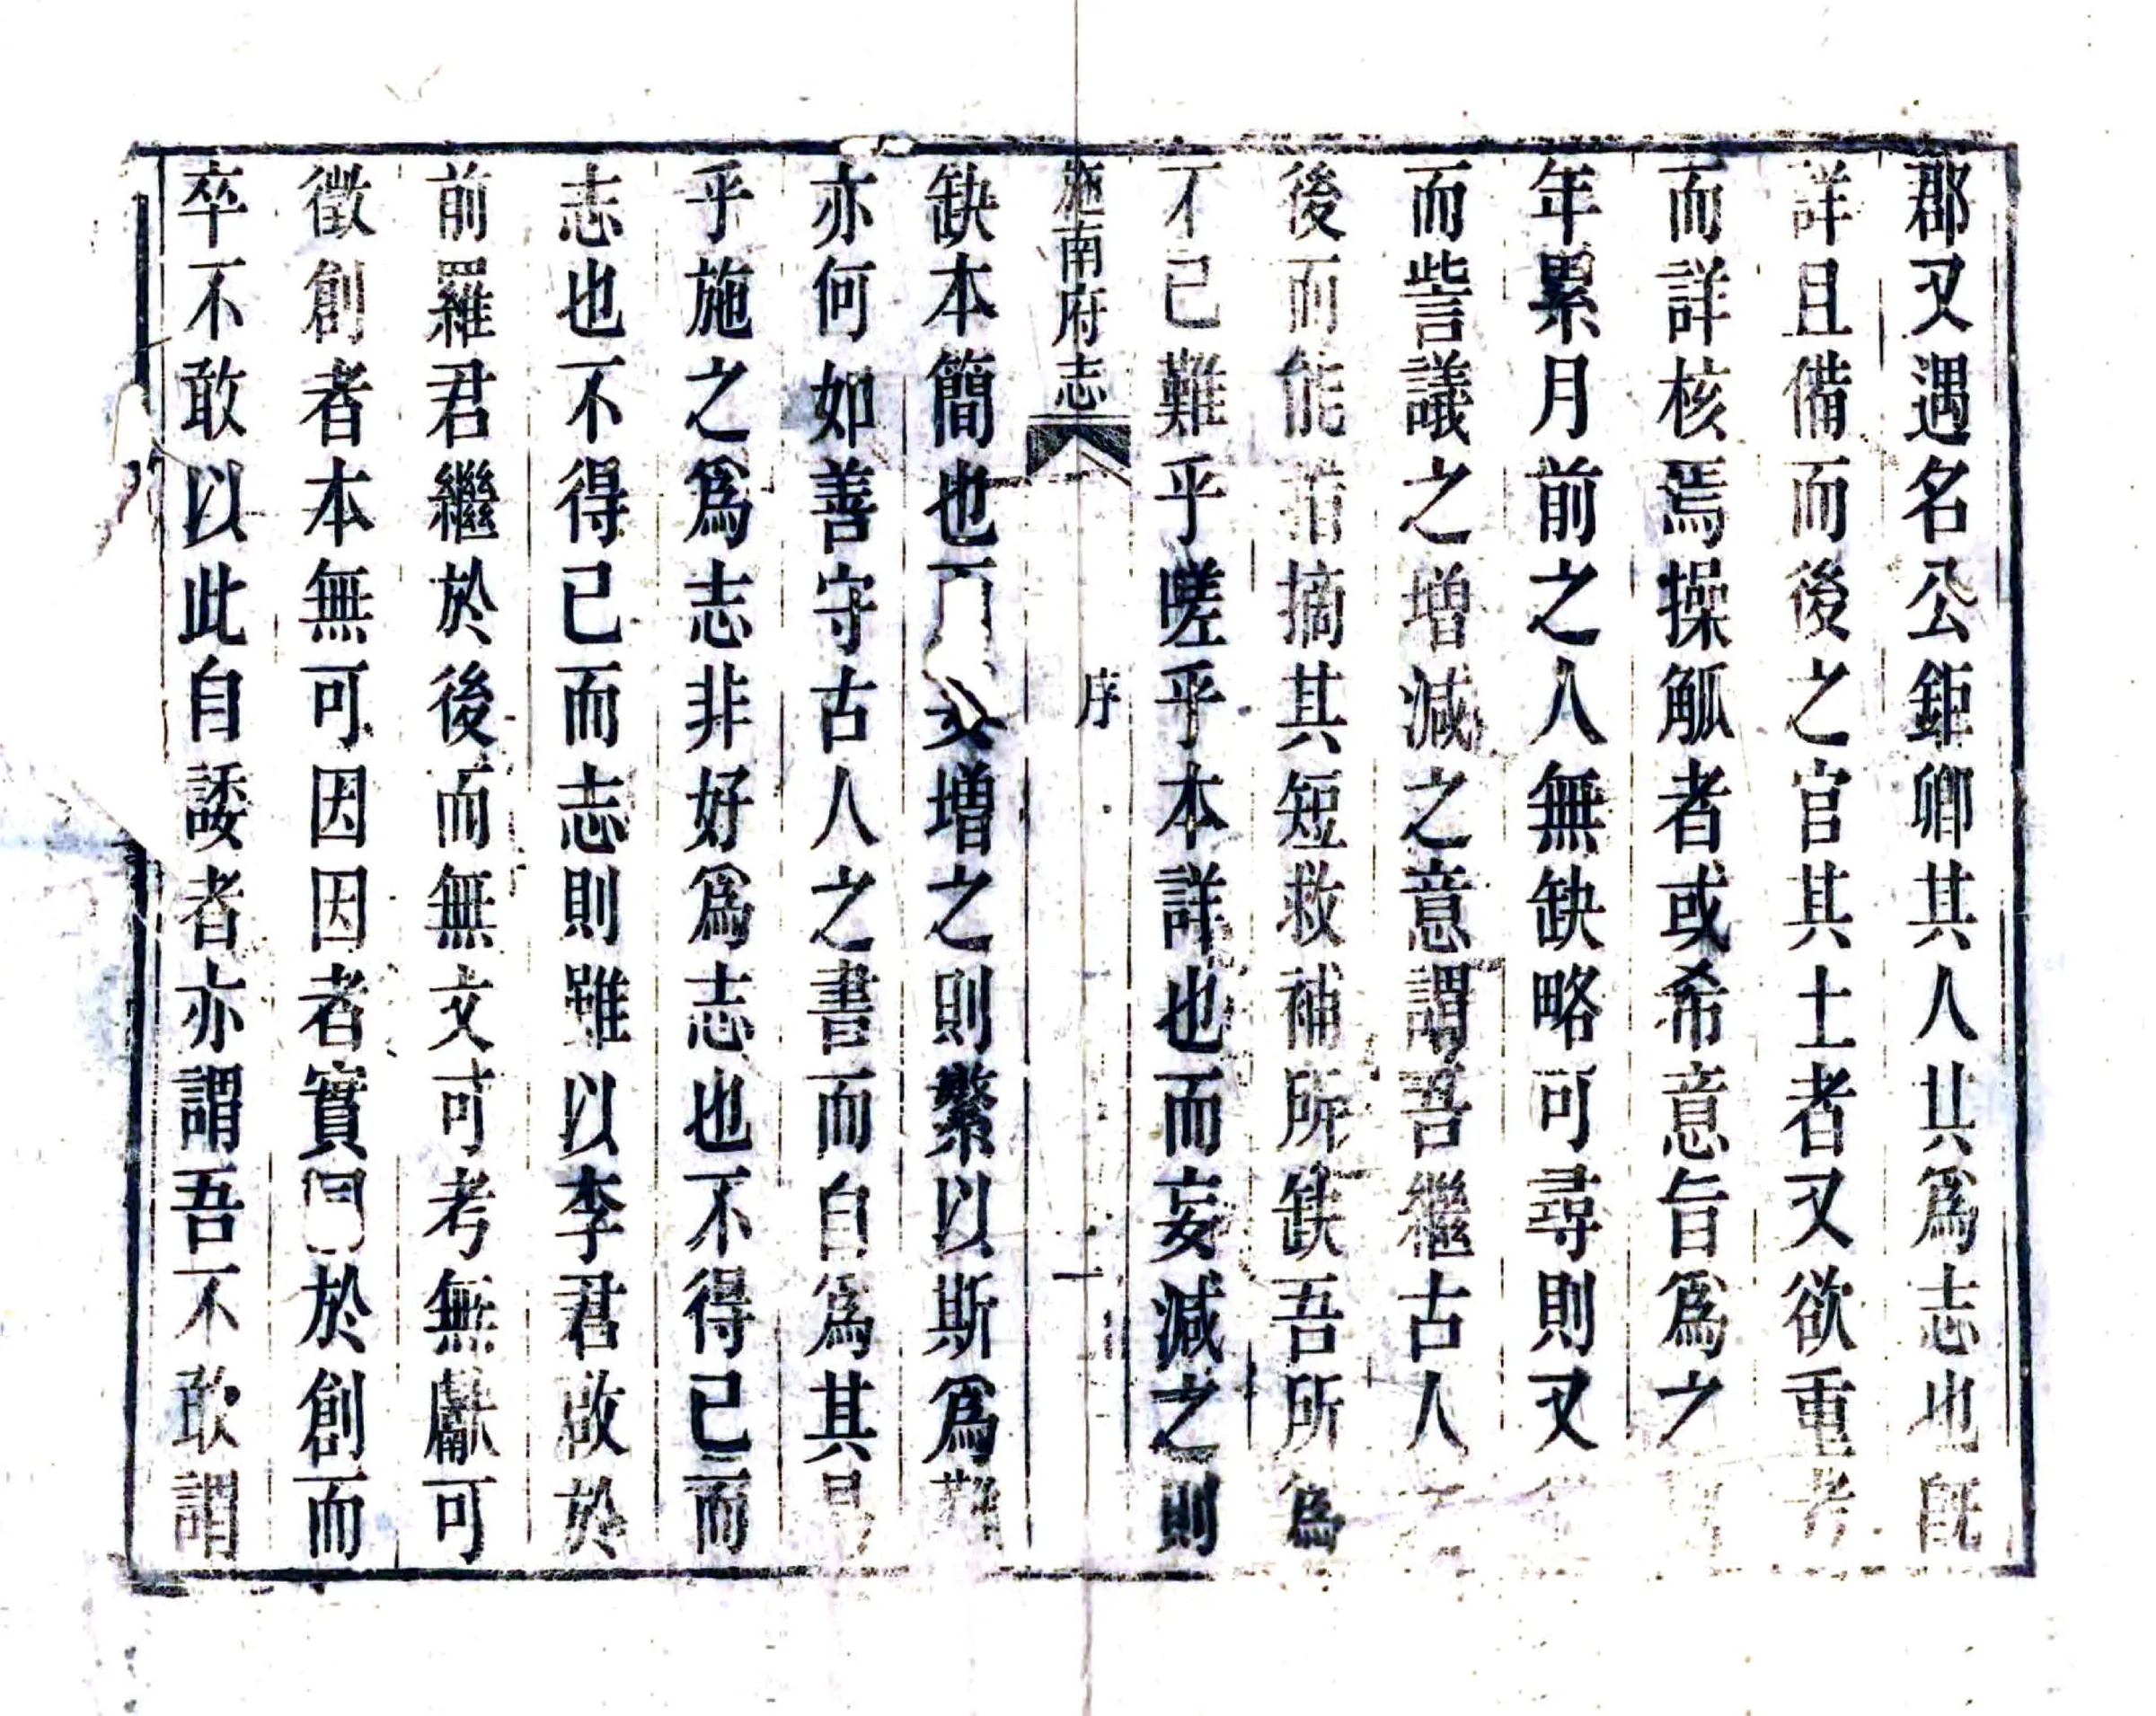 郡又遇名公鉅卿其人其爲志也旣
詳且備而後之官其土者又欲重考
而詳核焉操觚者或希意旨爲之
年累月前之人無缺略可尋則又
而訾議之增減之意謂吾繼古人
後而能指摘其短救補所缺吾所爲
不已難乎嗟乎本詳也而妄減之則
施南府志
序
一
缺本簡也而妄增之則繁以斯爲難
亦何如善守古人之書而自爲其
乎施之爲志非好爲志也不得已而
志也不得已而志則雖以李君啟於
前羅君繼於後而無文可考無獻可
徵創者本無可因因者實同於創而
卒不敢以此自諉者亦謂吾不敢謂